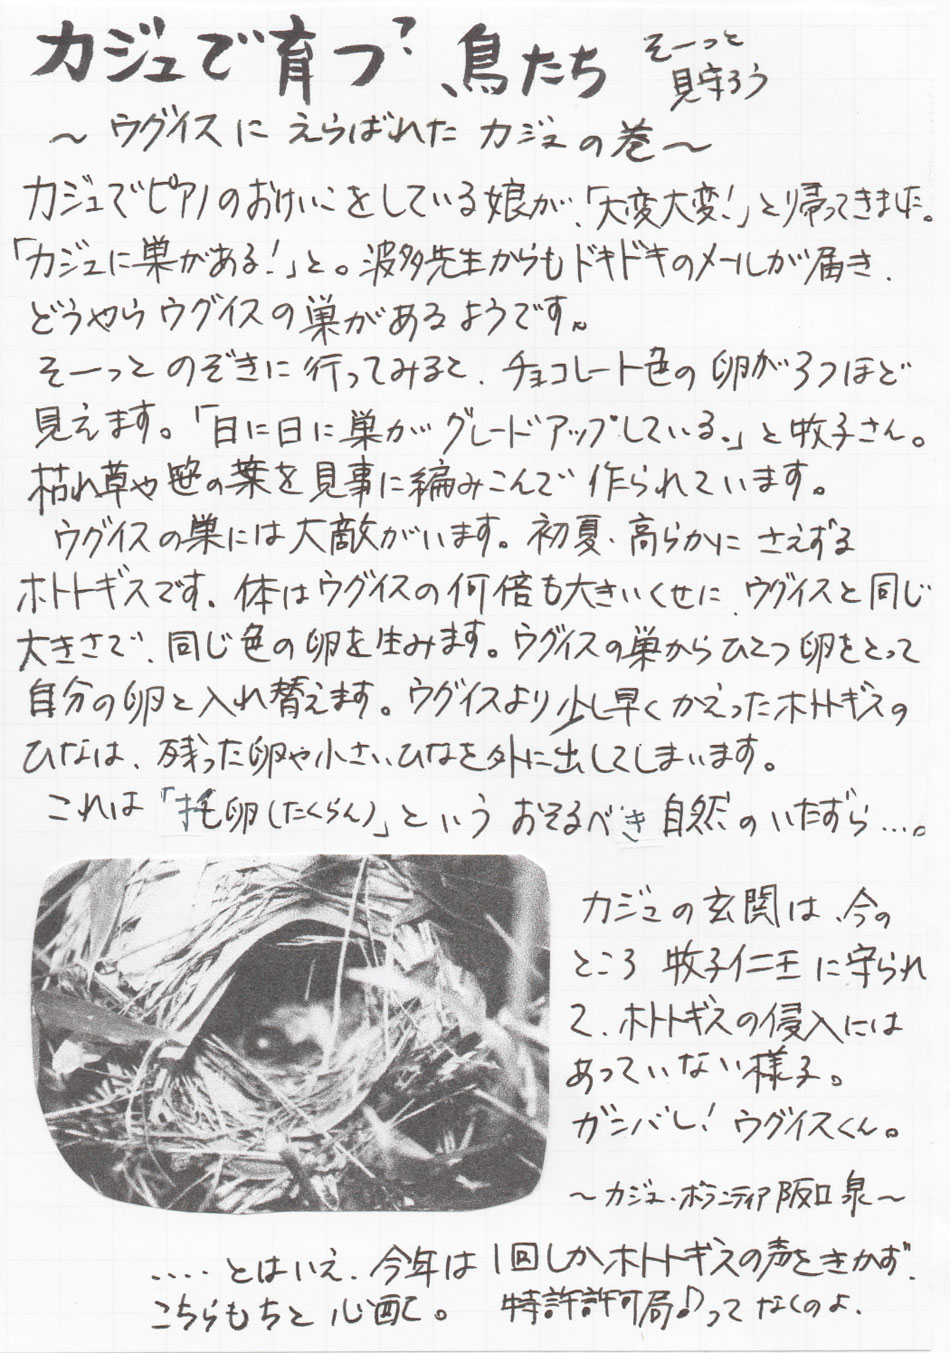 カジュで育つ?、鳥たち
そーっと
見守ろう
〜 ウグイスに えらばれた カジュの巻 〜
カジュでピアノのおけいこをしている娘が、「大変大変!」と帰ってきました。
「カジュに巣がある!」と。波多先生からもドキドキのメールが届き、
どうやらウグイスの巣があるようです。
そーっと のぞきに 行ってみると、チョコレート色の 卵が3つほど
見えます。「日に日に巣が グレードアップしている。」と牧子さん。
枯れ草や笹の葉を見事に編みこんで 作られています。
ウグイスの巣には大敵がいます。初夏、高らかに さえずる
ホトトギスです。体はウグイスの何倍も大きいくせに、ウグイスと同じ
大きさで、同じ色の卵を生みます。ウグイスの巣からひとつ卵をとって
自分の卵と入れ替えます。ウグイスより少し早くかえったホトトギスの
ひなは、残った卵や小さいひなを外に出してしまいます。
これは「托卵(たくらん)」という おそるべき 自然のいたずら…。
カジュの玄関は、今の
ところ 牧子仁王に守られ
て、ホトトギスの侵入には
あっていない様子。
ガンバレ! ウグイスくん。
〜カジュ・ボランティア 阪口 泉〜
‥‥とはいえ、今年は1回しかホトトギスの声をきかず、
こちらもちと心配。 特許許可局♪って なくのよ、